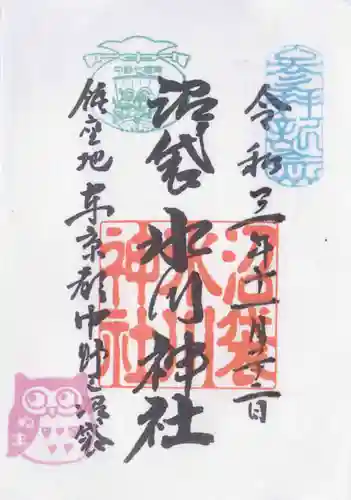 参拝記念
令和三年十一月二十二日
沼袋氷川神社
沼袋
氷川
神社
鎮座地東京都中野区沼袋